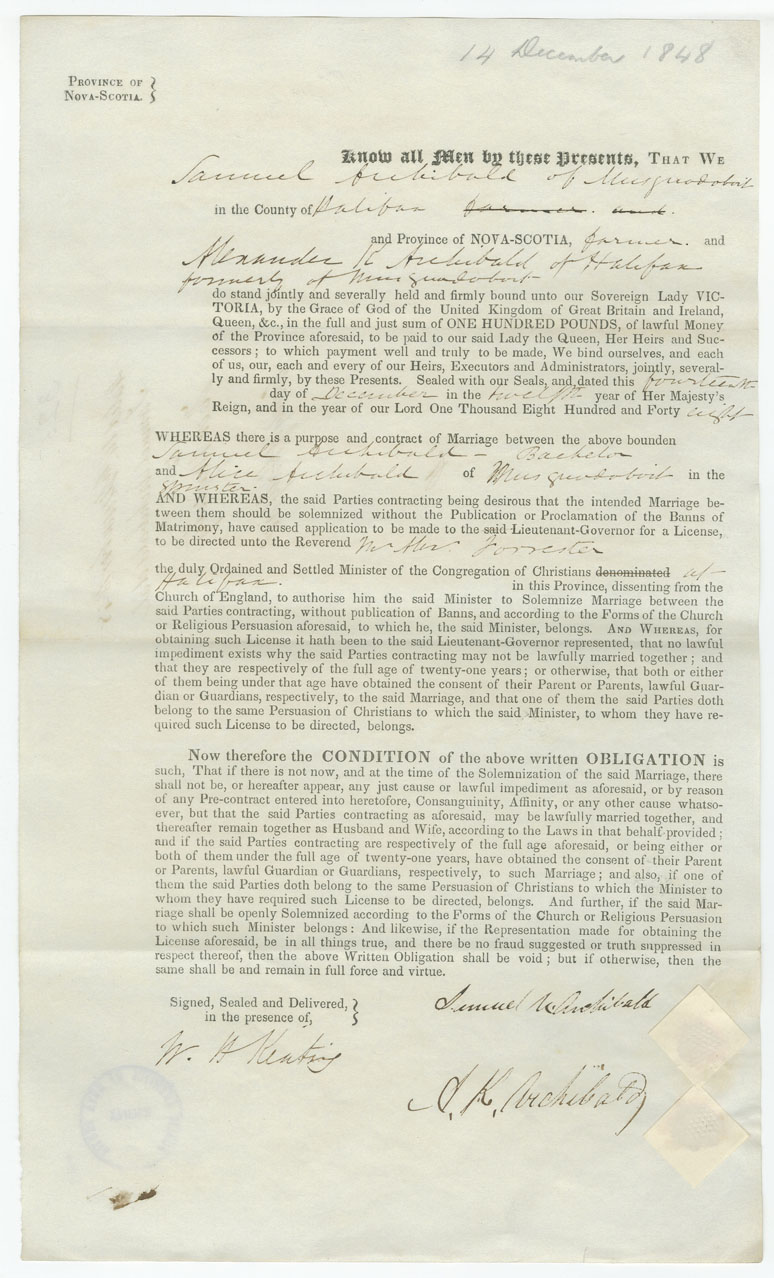 14 December 1848
PROVINCE OF
NOVA-SCOTIA.
Know all Men by these Presents, THAT WE
Samuel Archibald of Musquodoboit
in the County of Halifax farmer. and.
and Province of NOVA-SCOTIA, farmer. and
Alexander K Archibald of Halifax
formerly of Musquodoboit
do stand jointly and severally held and firmly bound unto our Sovereign Lady VIC-
TORIA, by the Grace of God of the United Kingdom of Great Britain and Ireland,
Queen, &c., in the full and just sum of ONE HUNDRED POUNDS, of lawful Money
of the Province aforesaid, to be paid to our said Lady the Queen, Her Heirs and Suc-
cessors; to which payment well and truly to be made, We bind ourselves, and each
of us, our, each and every of our Heirs, Executors and Administrators, jointly, several-
ly and firmly, by these Presents. Sealed with our Seals, and dated this fourteenth
day of December in the twelfth year of Her Majesty's
Reign, and in the year of our Lord One Thousand Eight Hundred and Forty eight
WHEREAS there is a purpose and contract of Marriage between the above bounden
Samuel Archibald - Bachelor
and Alice Archibald of Musquodoboit in the
Spinster.
AND WHEREAS, the said Parties contracting being desirous that the intended Marriage be-
tween them should be solemnized without the Publication or Proclamation of the Banns of
Matrimony, have caused application to be made to the said Lieutenant-Governor for a License,
to be directed unto the Reverend Mr Alexr Forrester
the duly Ordained and Settled Minister of the Congregation of Christians denominated at
Halifax. in this Province, dissenting from the
Church of England, to authorise him the said Minister to Solemnize Marriage between the
said Parties contracting, without publication of Banns, and according to the Forms of the Church
or Religious Persuasion aforesaid, to which he, the said Minister, belongs. AND WHEREAS, for
obtaining such License it hath been to the said Lieutenant-Governor represented, that no lawful
impediment exists why the said Parties contracting may not be lawfully married together; and
that they are respectively of the full age of twenty-one years; or otherwise, that both or either
of them being under that age have obtained the consent of their Parent or Parents, lawful Guar-
dian or Guardians, respectively, to the said Marriage, and that one of them the said Parties doth
belong to the same Persuasion of Christians to which the said Minister, to whom they have re-
quired such License to be directed, belongs.
Now therefore the CONDITION of the above written OBLIGATION is
such, That if there is not now, and at the time of the Solemnization of the said Marriage, there
shall not be, or hereafter appear, any just cause or lawful impediment as aforesaid, or by reason
of any Pre-contract entered into heretofore, Consanguinity, Affinity, or any other cause whatso-
ever, but that the said Parties contracting as aforesaid, may be lawfully married together, and
thereafter remain together as Husband and Wife, according to the Laws in that behalf provided;
and if the said Parties contracting are respectively of the full age aforesaid, or being either or
both of them under the full age of twenty-one years, have obtained the consent of their Parent
or Parents, lawful Guardian or Guardians, respectively, to such Marriage; and also, if one of
them the said Parties doth belong to the same Persuasion of Christians to which the Minister to
whom they have required such License to be directed, belongs. And further, if the said Mar-
riage shall be openly Solemnized according to the Forms of the Church or Religious Persuasion
to which such Minister belongs: And likewise, if the Representation made for obtaining the
License aforesaid, be in all things true, and there be no fraud suggested or truth suppressed in
respect thereof, then the above Written Obligation shall be void; but if otherwise, then the
same shall be and remain in full force and virtue.
Signed, Sealed and Delivered,
in the presence of,
Samuel Archibald
W. H Keating
A. K. Archibald